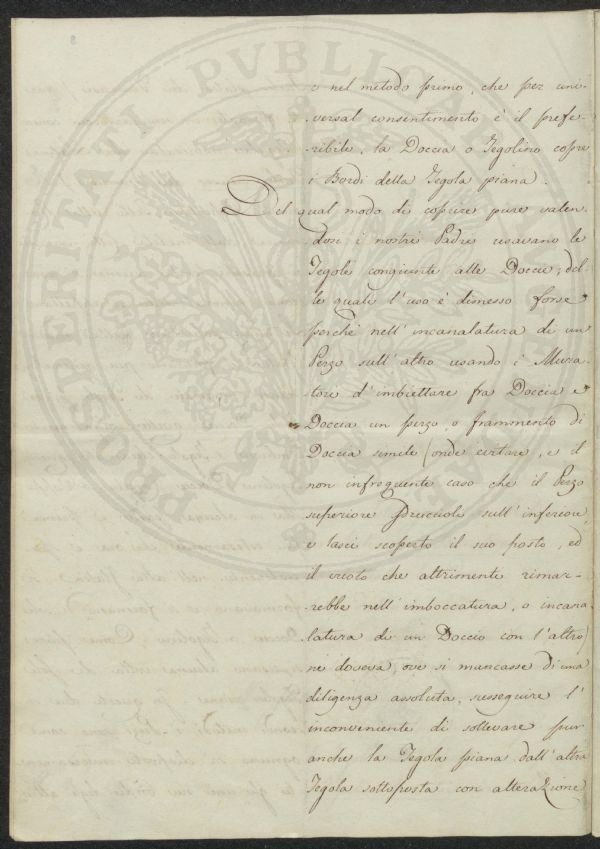 e nel metodo primo, che per uni-
versal consentimento è il prefe-
ribile, la Doccia o Tegolino copre
i Bordi della Tegola piana.
Del qual modo di coprire pure valen-
dosi i nostri Padri usavano le
Tegole congiunte alle Doccie, del-
le quali l'uso è dimesso forse
perchè nell'incanalatura di un
Pezzo sull'altro usando i Mura-
tori d'imbiettare fra Doccia e
Doccia un pezzo o frammento di
Doccia simile (onde evitare, e il
non infrequente caso che il Pezzo
superiore sdruccioli sull'inferiore,
e lasci scoperto il suo posto, ed
il vuoto che altrimenti rimar-
rebbe nell'imboccatura, o incana-
latura di un Doccio con l'altro)
ne doveva, ove si mancasse di una
diligenza assoluta, susseguire l'
inconveniente di sollevare pur
anche la Tegola piana dall'altra
Tegola sottoposta con alterazione
PROSPERITATI PVBLICAE